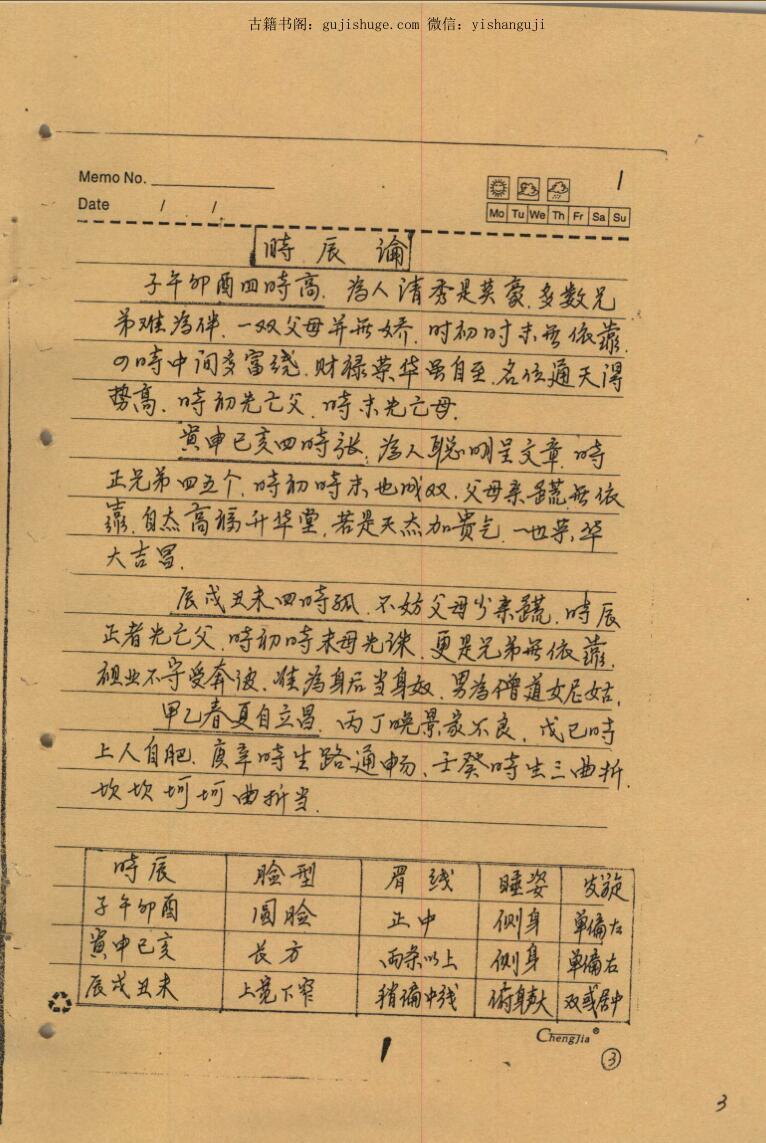 古籍书阁：gujishuge.com 微信：yishanguji
Memo No.
1
Date / /
Mo Tu We Th Fr Sa Su
時辰論
子午卯酉四時高．為人清秀是英豪．多数兄
弟难為伴．一双父母并無娇．时初时末無依靠．
の時中间多富绕．财禄荣华虽自至．名位通天得
势高．时初先亡父．時末先亡母．
寅申已亥四時张．為人聪明呈文章．時
正兄弟四五个．時初時末也成双．父母亲疏無依
靠．自杰高福升华堂．若是天杰加贵气．一也荣华
大吉昌．
辰戌丑未四時孤．不妨父母少亲疏．時辰
正者先亡父．時初時末母先诛．更是兄弟無依靠．
祖业不守受奔波．难為身后当身奴．男為僧道女尼姑．
甲乙春夏自立昌．丙丁晚景家不良．戊已時
上人自肥．庚辛時生路通畅．壬癸時生三曲折．
坎坎坷坷曲折当．
時辰 脸型 眉线 睡姿 发旋
子午卯酉 圆脸 正中 侧身 单偏左
寅申已亥 长方 两条以上 侧身 单偏右
辰戌丑未 上宽下窄 稍偏中线 俯身大 双或居中
ChengJia®
1
③
3